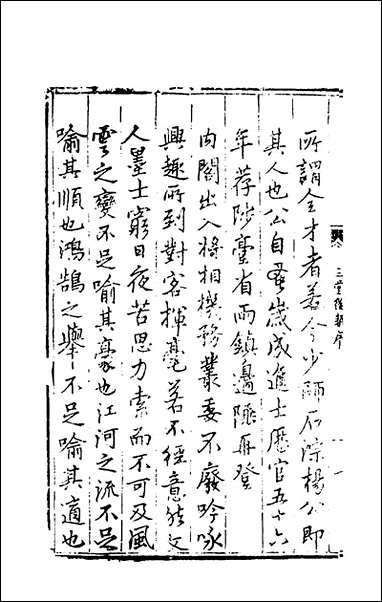 所謂全才者若今少師石淙楊公即
其人也公自蚤歲成進士歷官五十六
年荐陟臺省兩鎮邊陲再登
內閣出入將相機務叢委不廢吟咏
興趣所到對客揮毫若不經意然文
人墨士窮日夜苦思力索而不可及風
雲之變不足喻其豪也江河之流不足
喻其順也鴻鵠之舉不足喻其適也